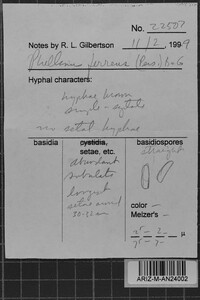 No. 22507
Notes by R. L. Gilbertson 11/2, 1999
Phellinus ferreus (Pers.) B+G
Hyphal characters:
hyphae brown
simple-septate
no setal hyphae
basidia cystidia, setae, etc. basidiospores
abundant straight
subulate
longest
setae around
30-32 um
color –
Melzer's –
µ
ARIZ-M-AN24002